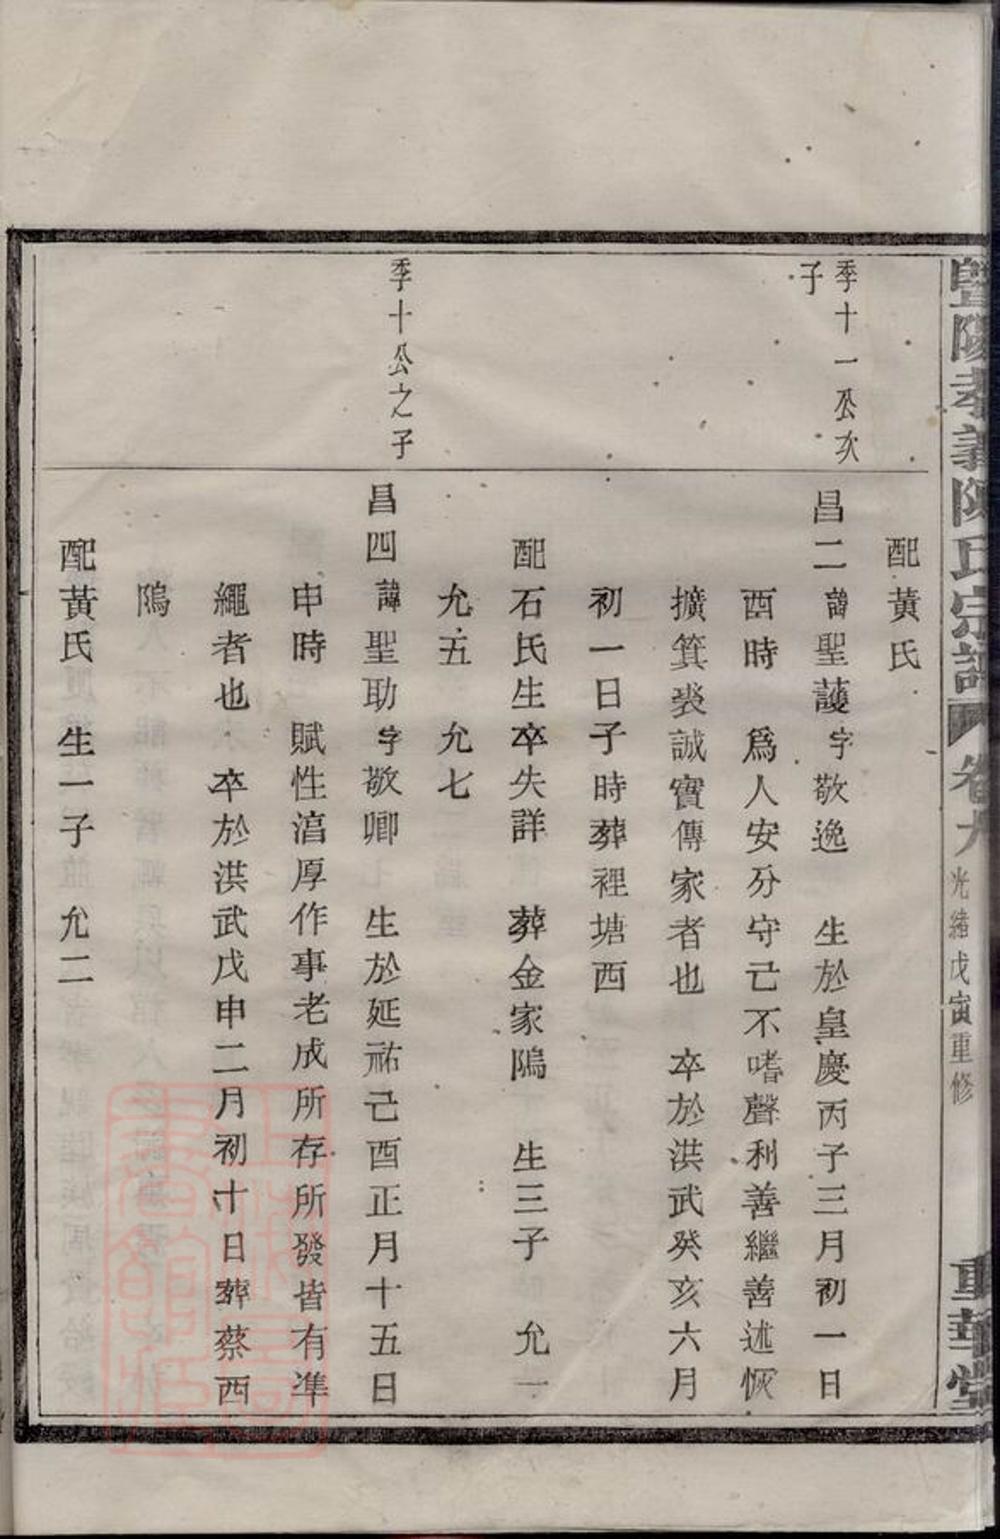 暨陽孝義陳氏宗譜 卷九 光緒戊寅重修 重華堂
配黃氏
季十一公次
子
昌二諱聖護字敬逸 生於皇慶丙子三月初一日
酉時 爲人安分守己不嗜聲利善繼善述恢
擴箕裘誠實傳家者也 卒於洪武癸亥六月
初一日子時葬裡塘西
配石氏生卒失詳 葬金家隖 生三子 允一
允五 允七
季十公之子
昌四諱聖助字敬卿 生於延祐己酉正月十五日
申時 賦性湻厚作事老成所存所發皆有準
繩者也 卒於洪武戊申二月初十日葬蔡西
隖
配黃氏 生一子 允二